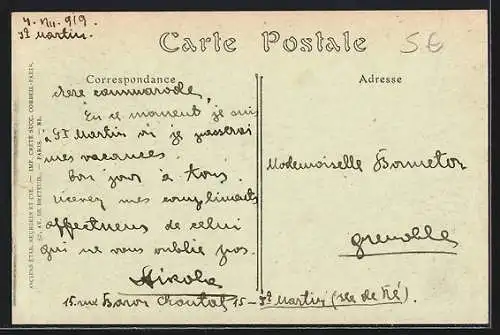 4. VII. 919
St Martin.
Carte Postale
SE
Correspondance
Adresse
chere cammarade
En ce moment je suis
à St Martin où je passerai
mes vacances.
bon jour à tous.
recevez mes compliments
affectueux de celui
qui ne vous oublie pas.
15 rue Baron Chantal 15 - St Martin (Isle de Ré).
Mademoiselle
Grenoble
ANCIENS ÉTAB. NEURDEIN ET CIE. — IMP. CRÉTÉ SUCC. CORBEIL-PARIS.
52, AV. DE BRETEUIL. — PARIS.